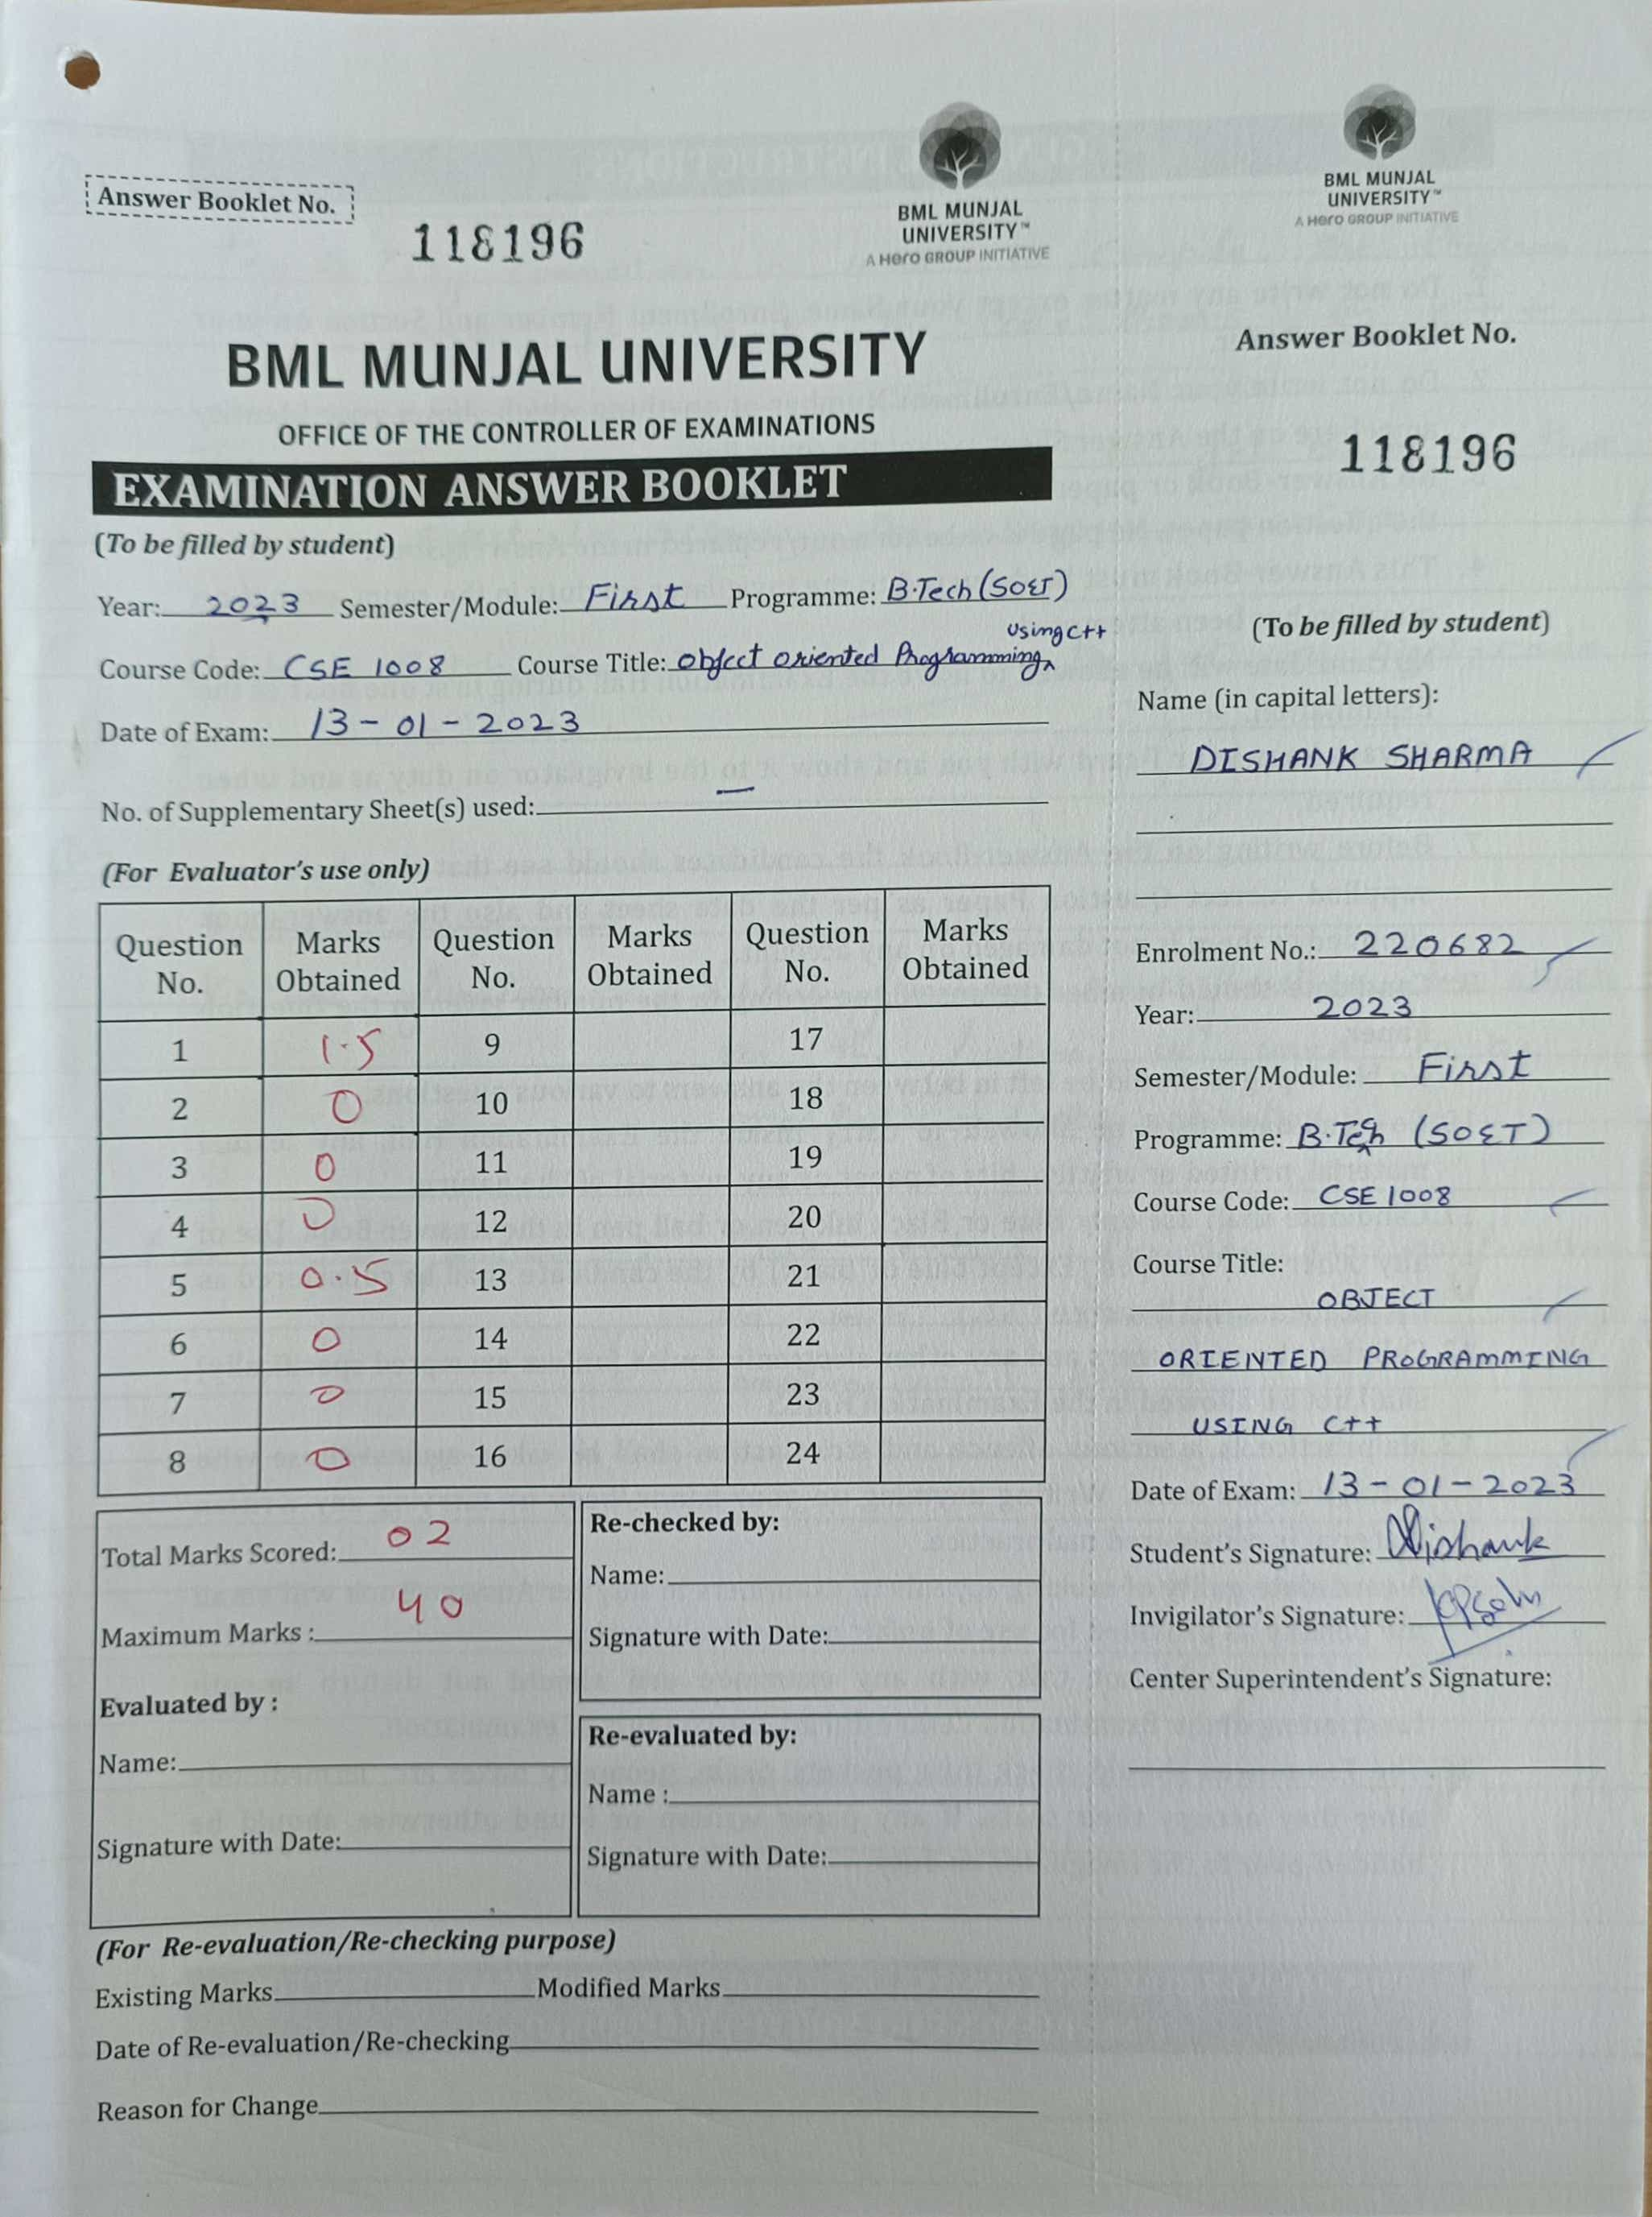 BML MUNJAL
UNIVERSITY™
A Hero GROUP INITIATIVE
Answer Booklet No.
118196
BML MUNJAL UNIVERSITY
OFFICE OF THE CONTROLLER OF EXAMINATIONS
EXAMINATION ANSWER BOOKLET
(To be filled by student)
Year: 2023 Semester/Module: First Programme: B.Tech (SOET)
using C++
Course Code: CSE 1008 Course Title: Object Oriented Programming
Date of Exam: 13-01-2023
No. of Supplementary Sheet(s) used: —
(For Evaluator's use only)
Question No. Marks Obtained Question No. Marks Obtained Question No. Marks Obtained
1 1.5 9 17
2 0 10 18
3 0 11 19
4 0 12 20
5 0.15 13 21
6 0 14 22
7 0 15 23
8 0 16 24
Total Marks Scored: 02
Maximum Marks : 40
Evaluated by :
Name:
Signature with Date:
Re-checked by:
Name:
Signature with Date:
Re-evaluated by:
Name :
Signature with Date:
(For Re-evaluation/Re-checking purpose)
Existing Marks Modified Marks
Date of Re-evaluation/Re-checking
Reason for Change
BML MUNJAL
UNIVERSITY™
A Hero GROUP INITIATIVE
Answer Booklet No.
118196
(To be filled by student)
Name (in capital letters):
DISHANK SHARMA
Enrolment No.: 220682
Year: 2023
Semester/Module: First
Programme: B.Tech (SOET)
Course Code: CSE 1008
Course Title:
OBJECT
ORIENTED PROGRAMMING
USING C++
Date of Exam: 13-01-2023
Student's Signature: Dishank
Invigilator's Signature:
Center Superintendent's Signature: